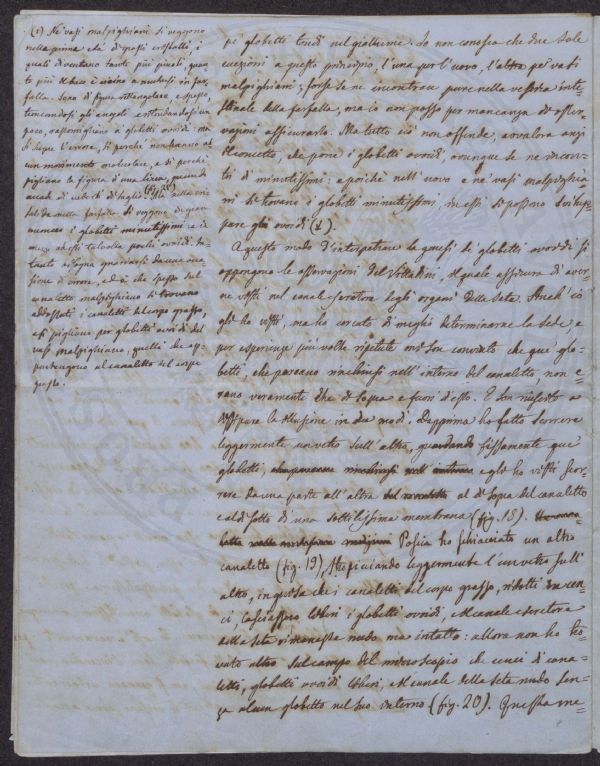 (1) Ne' vasi malpighiani si veggono
nella prima età di questi crostalli, i
quali diventano tanto più piccoli, quan-
to più il baco è vicino a mutarsi in far-
falla. Sono di figura rettangolare e spesso,
troncandosi gli angoli e ritondandosi un
poco, rassomigliano a globetti ovoidi: ma
si fugge l'errore, sì perchè non hanno al-
cun movimento molecolare, e sì perchè
pigliano la figura di una linea, quando
accade di vederli di taglio (fig. 25).
lide nella farfalla si veggono di gran
numero i globetti minutissimi e in
mezzo ad essi talvolta pochi ovoidi. In-
tanto bisogna guardarsi da una ca-
gione di errore, ed è che spesso sul
canaletto malpighiano si trovano
addossati i canaletti del corpo grasso,
e si pigliano per globetti ovoidi del
vaso malpighiano, quelli che ap-
partengono al canaletto del corpo
grasso.
pe' globetti ovoidi nel giallume. Io non conosco che due sole
eccezioni a questo principio, l'una per l'uovo, l'altra pe' vasi
malpighiani; forse se ne incontrerà pure nella vescica inte-
stinale della farfalla, ma io non posso per mancanza di osser-
vazioni assicurarlo. Ma tutto ciò non offende, avvalora anzi
il concetto, che pone i globetti ovoidi, ovunque se ne incon-
tri di minutissimi: e poichè nell'uovo e ne' vasi malpighia-
ni si trovano i globetti minutissimi, in essi si possono svilup-
pare gli ovoidi (1).
A questo modo d'interpetrare la genesi de' globetti ovoidi si
oppongono le osservazioni del Vittadini, il quale assicura di aver-
ne visti nel canale seretore degli organi della seta. Anch'io
gli ho visti, ma ho cercato di meglio determinarne la sede, e
per esperienze più volte ripetute mi son convinto che que' glo-
betti, che parevano rinchiusi nell'interno del canaletto, non e-
rano veramente che di sopra e fuori d'esso. E son riuscito a
dissipare la illusione in due modi. Dapprima ho fatto scorrere
leggermente un vetro sull'altro, guardando fissamente que'
globetti, che parevano rinchiusi nell'interno e gli ho visti scor-
rere da una parte all'altra del canaletto al di sopra del canaletto
e al di sotto di una sottilissima membrana (fig. 18).
Poscia ho schiacciato un altro
canaletto (fig. 19), stropicciando leggermente l'un vetro sull'
altro, in guisa che i canaletti del corpo grasso, ridotti in cen-
ci, lasciassero liberi i globetti ovoidi, e il canale seretore
della seta rimanesse nudo, ma intatto: allora non ho tro-
vato altro sul campo del microscopio che cenci di cana-
letti, globetti ovoidi liberi, e il canale della seta nudo sen-
za alcun globetto nel suo interno (fig. 20). Questa me-